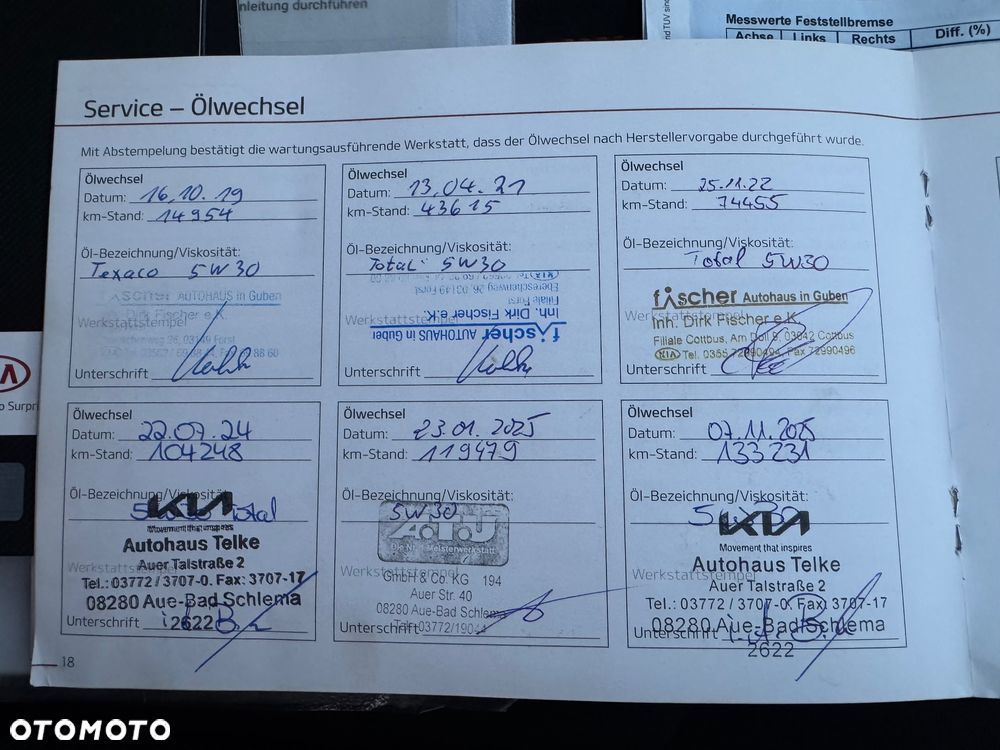 nleitung durchführen
nd TÜV sind
Messwerte Feststellbremse
Achse Links Rechts Diff. (%)
Service – Ölwechsel
Mit Abstempelung bestätigt die wartungsausführende Werkstatt, dass der Ölwechsel nach Herstellervorgabe durchgeführt wurde.
Ölwechsel
Datum: 16.10.19
km-Stand: 14954
Öl-Bezeichnung/Viskosität:
Texaco 5W30
fischer AUTOHAUS in Guben
Inh. Dirk Fischer e.K.
Werkstattstempel
Unterschrift
Ölwechsel
Datum: 13.04.21
km-Stand: 43615
Öl-Bezeichnung/Viskosität:
Total 5W30
Ebereschenweg 26, 03149 Forst
Filiale Forst
Inh. Dirk Fischer e.K.
Werkstattstempel
fischer AUTOHAUS in Guben
Unterschrift
Ölwechsel
Datum: 25.11.22
km-Stand: 74455
Öl-Bezeichnung/Viskosität:
Total 5W30
fischer Autohaus in Guben
Werkstattstempel
Inh. Dirk Fischer e.K.
Filiale Cottbus, Am Doll 9, 03042 Cottbus
KIA Tel. 0355 72990494, Fax 72990496
Unterschrift
Ölwechsel
Datum: 22.07.24
km-Stand: 104248
Öl-Bezeichnung/Viskosität:
5W30 Total
KIA
Movement that inspires
Autohaus Telke
Auer Talstraße 2
Werkstattstempel
Tel.: 03772 / 3707-0. Fax: 3707-17
08280 Aue-Bad Schlema
Unterschrift
2622
Ölwechsel
Datum: 23.01.2025
km-Stand: 119479
Öl-Bezeichnung/Viskosität:
5W30
A.T.U
Die Nr. 1 Meisterwerkstatt
Werkstattstempel
GmbH & Co. KG 194
Auer Str. 40
08280 Aue-Bad Schlema
Unterschrift
Ölwechsel
Datum: 07.11.2025
km-Stand: 133231
Öl-Bezeichnung/Viskosität:
5W30
KIA
Movement that inspires
Autohaus Telke
Werkstattstempel
Auer Talstraße 2
Tel.: 03772 / 3707-0. Fax: 3707-17
08280 Aue-Bad Schlema
Unterschrift
2622
18
KIA
o Surpri
OTOMOTO